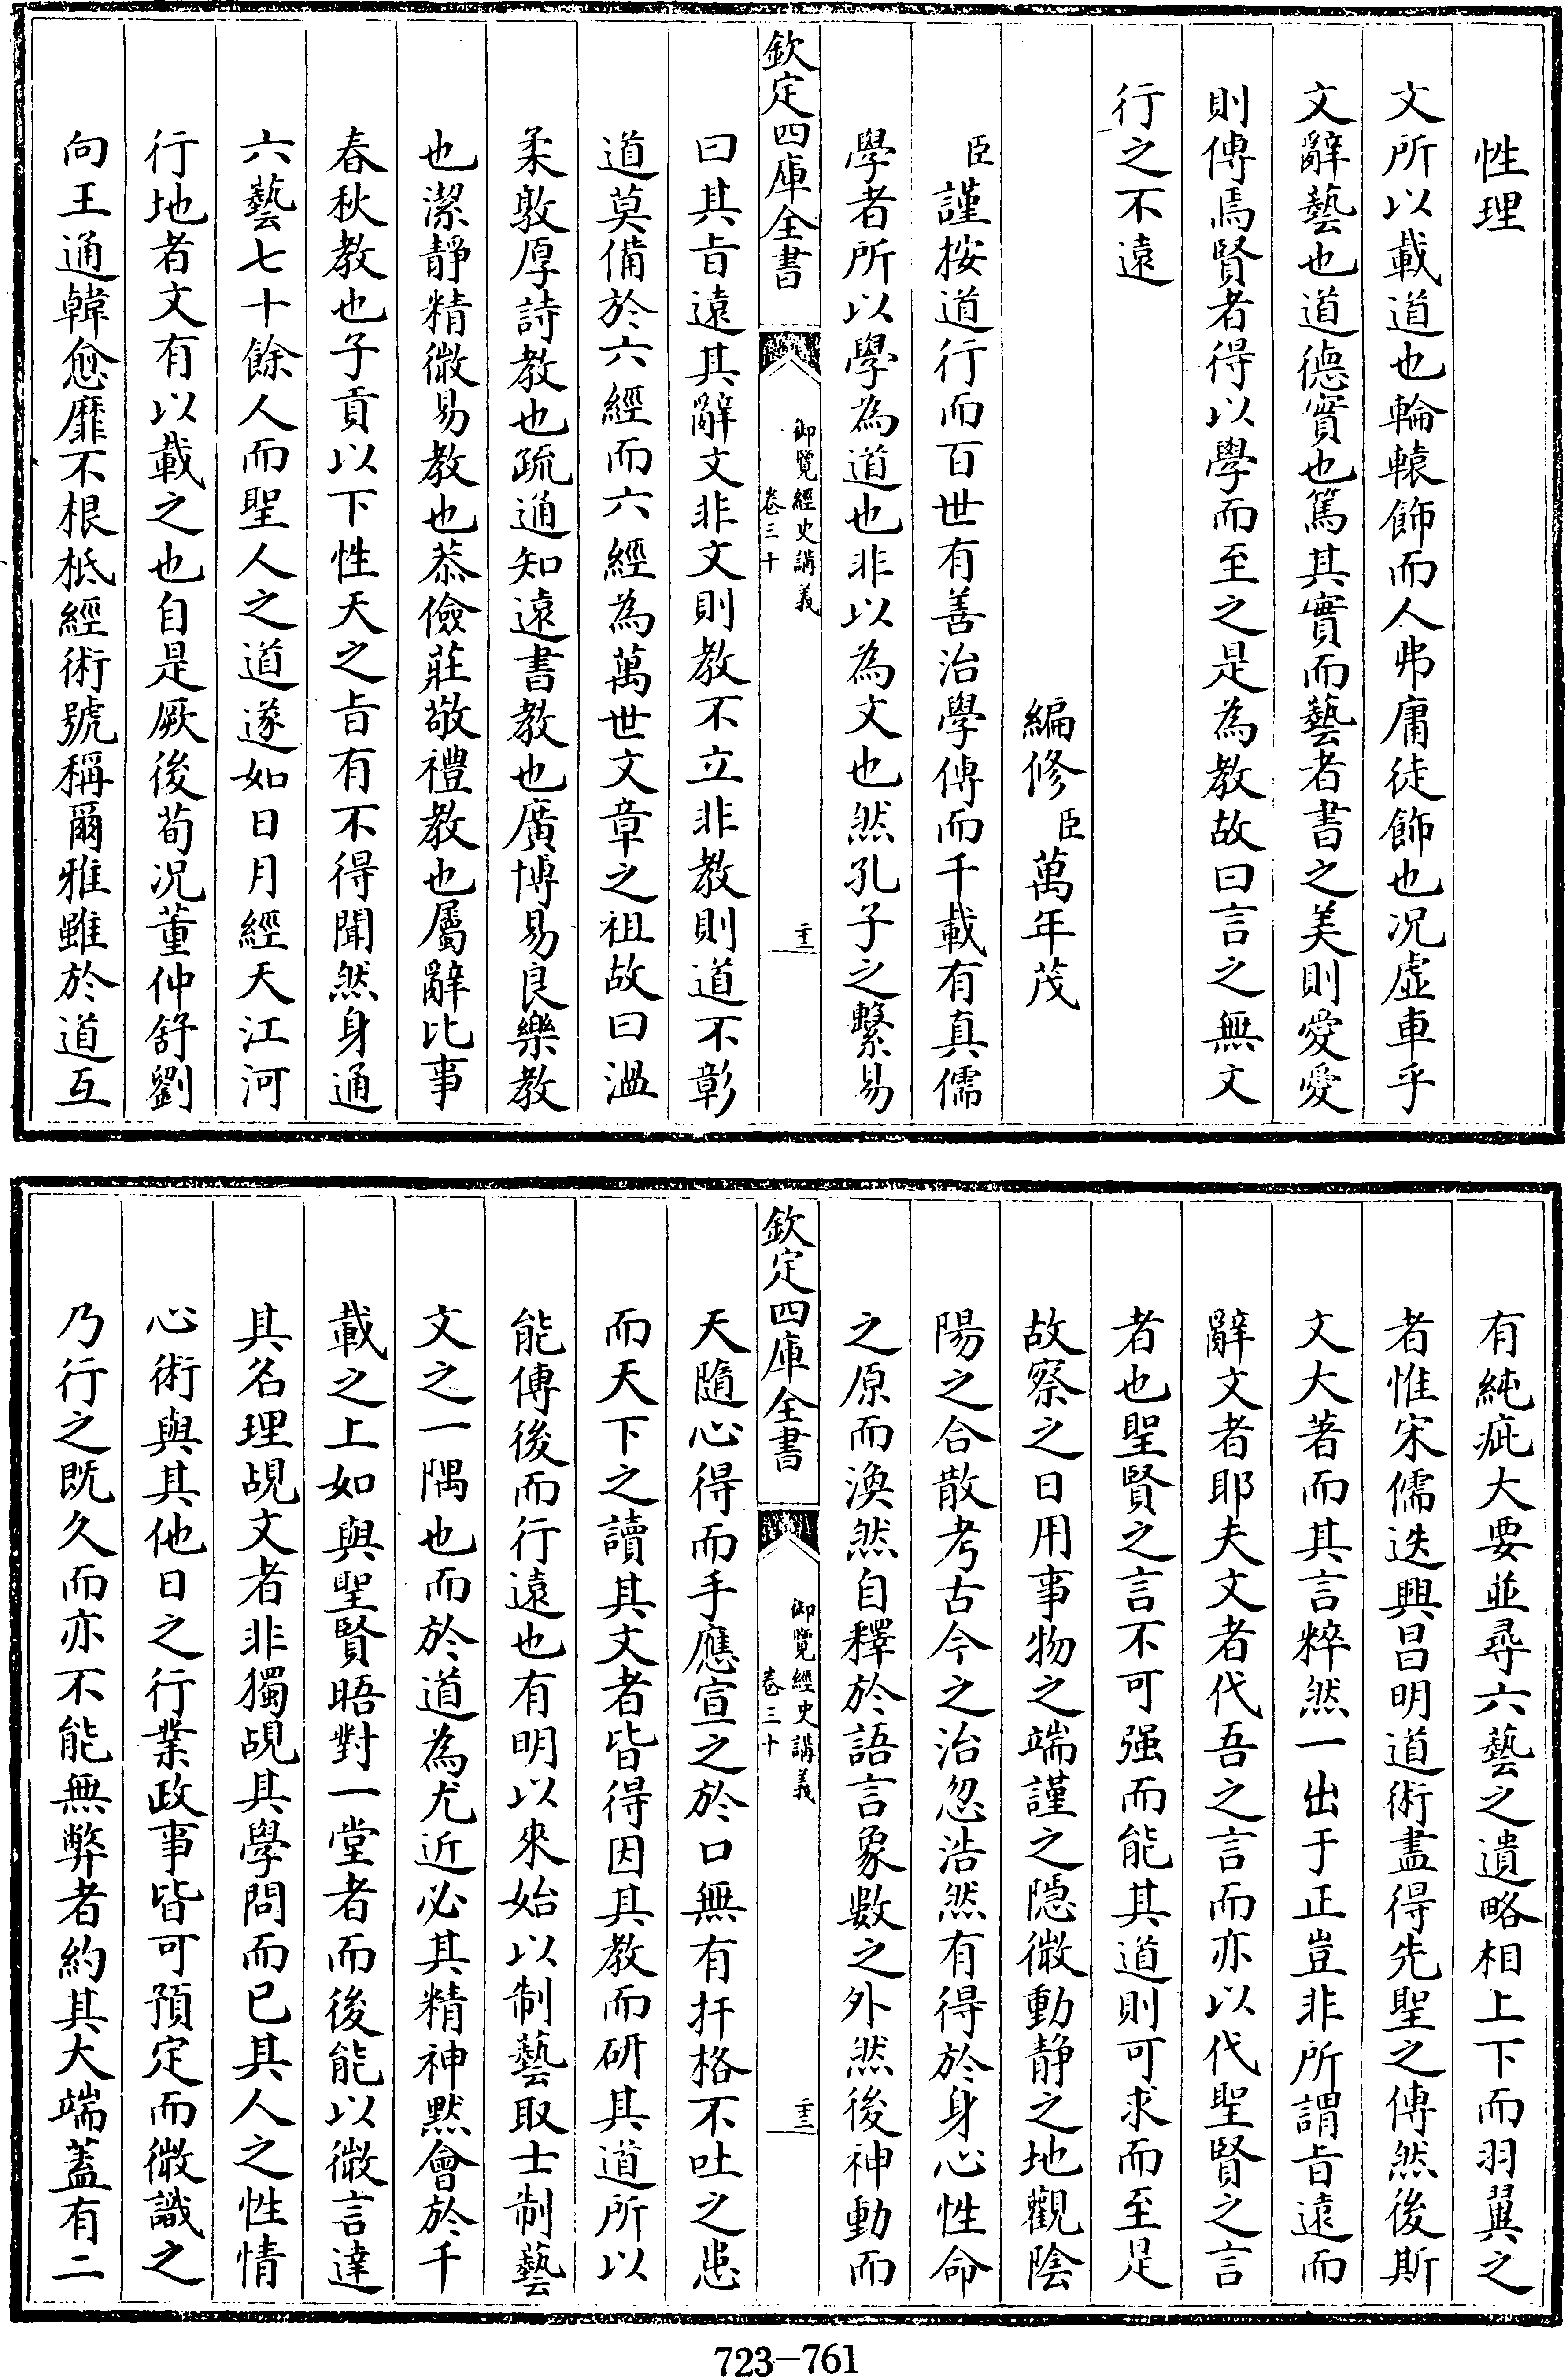 性理
文所以載道也輪轅飾而人弗庸徒飾也况虛車乎
文辭藝也道德實也篤其實而藝者書之美則愛愛
則傳焉賢者得以學而至之是為教故曰言之無文
行之不遠
編修臣萬年茂
臣謹按道行而百世有善治學傳而千載有真儒
學者所以學為道也非以為文也然孔子之繫易
欽定四庫全書
御覽經史講義
卷三十
二十三
曰其旨遠其辭文非文則教不立非教則道不彰
道莫備於六經而六經為萬世文章之祖故曰温
柔敦厚詩教也疏通知遠書教也廣博易良樂教
也潔靜精微易教也恭儉莊敬禮教也屬辭比事
春秋教也子貢以下性天之旨有不得聞然身通
六藝七十餘人而聖人之道遂如日月經天江河
行地者文有以載之也自是厥後荀况董仲舒劉
向王通韓愈靡不根柢經術號稱爾雅雖於道互
有純疵大要並尋六藝之遺略相上下而羽翼之
者惟宋儒迭興昌明道術盡得先聖之傳然後斯
文大著而其言粹然一出于正豈非所謂旨遠而
辭文者耶夫文者代吾之言而亦以代聖賢之言
者也聖賢之言不可强而能其道則可求而至是
故察之日用事物之端謹之隱微動静之地觀陰
陽之合散考古今之治忽浩然有得於身心性命
之原而渙然自釋於語言象數之外然後神動而
欽定四庫全書
御覽經史講義
卷三十
二十三
天隨心得而手應宣之於口無有扞格不吐之患
而天下之讀其文者皆得因其教而研其道所以
能傳後而行遠也有明以來始以制藝取士制藝
文之一隅也而於道為尤近必其精神黙會於千
載之上如與聖賢晤對一堂者而後能以微言達
其名理覘文者非獨覘其學問而已其人之性情
心術與其他日之行業政事皆可預定而微識之
乃行之既久而亦不能無弊者約其大端蓋有二
723-761